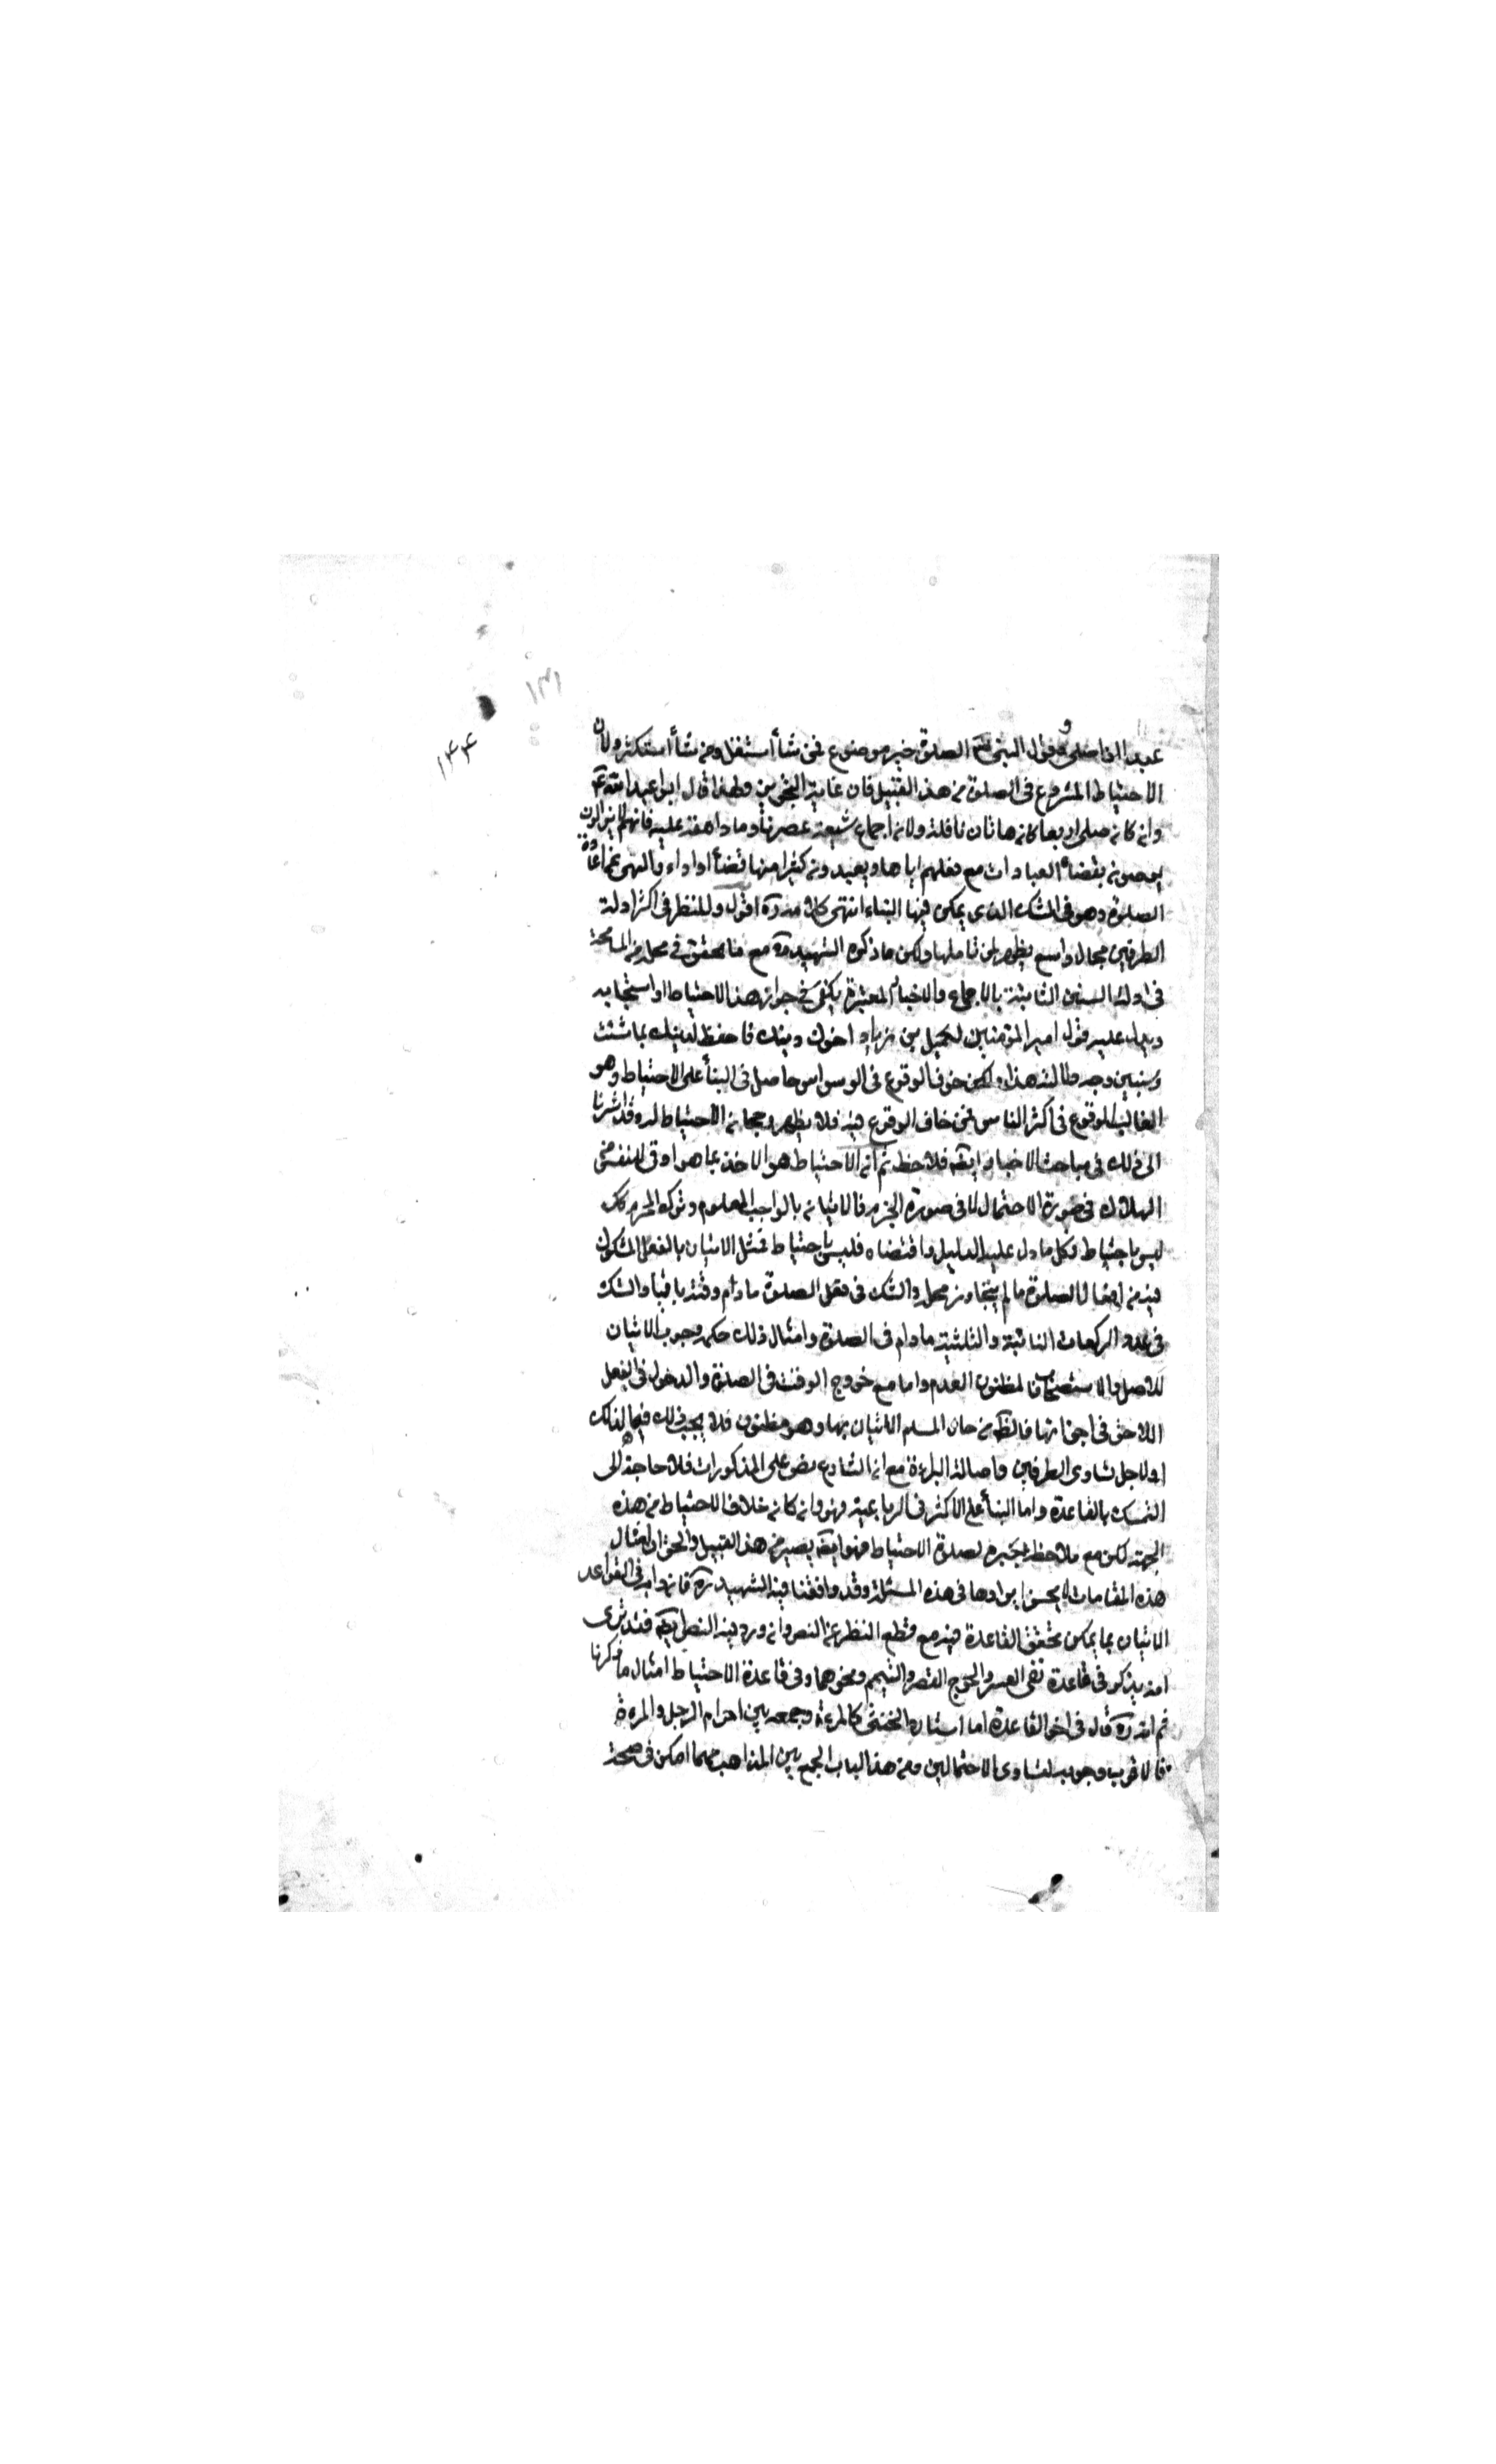 ١٣١
١٤٤
عبدا اذا صلى وقول النبي ص الصلوة خير موضوع فمن شأ استقل ومن شأ استكثر ولان
الاحتياط المشروع في الصلوة من هذا القبيل فان غايته التجويز ولهذا قال ابو عبد الله ع
وان كان صلى اربعا كانت هاتان نافلة ولان اجماع شيعة عصرنا وما راهقه عليه فانهم لا يزالون
يوصون بقضاء العبادات مع فعلهم اياها ويعيدون كثيرا منها قضأ اواداء والنهي عن اعادة
الصلوة هو في الشك الذي يمكن فيها البناء انتهى كلامه ره اقول وللنظر في اكثر ادلة
الطرفين مجال واسع يظهر لمن تاملها ولكن ما ذكره الشهيد ره مع ما يحقق في محله من المسامحة
في ادلة السنن الثابتة بالاجماع والاخبار المعتبرة يكفى في جواز هذا الاحتياط او استحبابه
ويدل عليه قول امير المؤمنين لكميل بن زياد اخوك دينك فاحفظ لدينك بما شئت
وسنبين وجه دلالته هذا ولكن خوف الوقوع في الوسواس حاصل في البنأ على الاحتياط وهو
الغالب الوقوع في اكثر الناس فمن خاف الوقوع فيه فلا يظهر رجحان الاحتياط له وقد اشرنا
الى ذلك في مباحث الاخبار ايضه فلاحظ ثم ان الاحتياط هو الاخذ بما هو اوقى للنفس من
الهلاك في صورة الاحتمال لا في صورة الجزم فالاتيان بالواجب المعلوم وترك المحرم كك
ليس باحتياط وكل ما دل عليه الدليل واقتضاه فليس باحتياط فمثل الاتيان بالفعل المشكوك
فيه من افعال الصلوة ما لم يتجاوز محله والشك في فعل الصلوة ما دام وقته باقيا والشك
في عدد الركعات الثنائية والثلثية ما دام في الصلوة وامثال ذلك حكمه وجوب الاتيان
للاصل والاستصحاب فالمظنون العدم واما مع خروج الوقت في الصلوة والدخول في الفعل
اللاحق في اجزائها فالظه من حال المسلم الاتيان بها وهو مظنون فلا يجب ذلك فيها لذلك
او لاجل تساوى الطرفين واصالة البراءة مع ان الشارع نص على المذكورات فلا حاجة الى
التمسك بالقاعدة واما البنأ على الاكثر في الرباعية فهو وان كان خلاف الاحتياط من هذه
الجهة لكن مع ملاحظة جبره بصلوة الاحتياط فهو ايضه يصير من هذا القبيل والحق ان امثال
هذه المقامات لا يحسن ايرادها في هذه المسئلة وقد وافقنا فيه الشهيد ره فانه دابه في القواعد
الاتيان بما يمكن تحقق القاعدة فيه مع قطع النظر عن النص وان ورد فيه النص ايضه فتد ترى
انه يذكر في قاعدة نفى العسر والحرج القصر والتيمم ونحوهما وفي قاعدة الاحتياط امثال ما ذكرنا
ثم انه ره قال في اخر القاعدة اما استتار الخنثى كالمرءة وجمعه بين احرام الرجل والمرءة
فالاقرب وجوبه لتساوى الاحتمالين ومن هذا الباب الجمع بين المذاهب مهما امكن في صحة